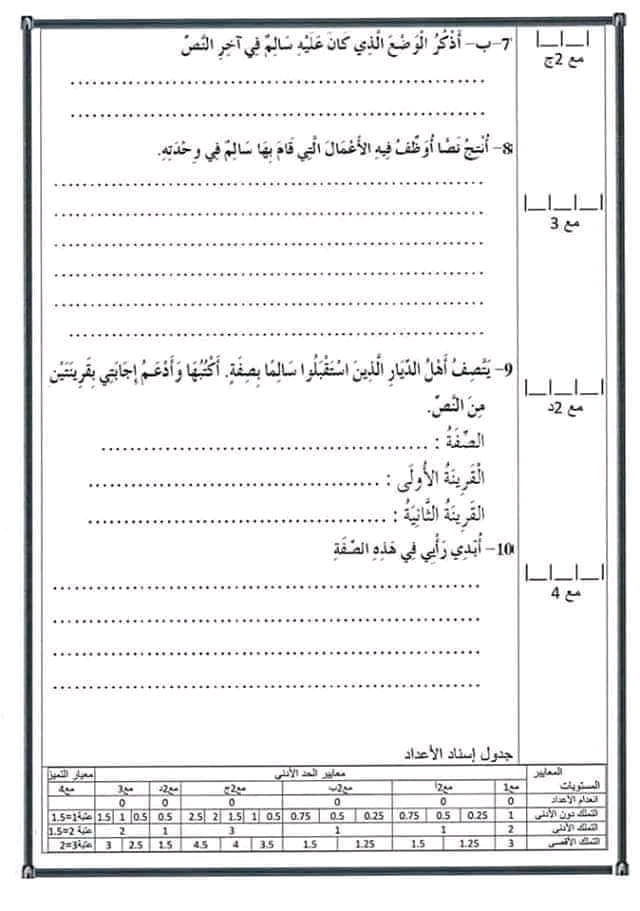 7-ب- أَذْكُرُ الْوَضْعَ الَّذِي كَانَ عَلَيْهِ سَالِمٌ فِي آخِرِ النَّصِّ
مع 2ج
8- أُنْتِجُ نَصًّا أُوَظِّفُ فِيهِ الأَعْمَالَ الَّتِي قَامَ بِهَا سَالِمٌ فِي وِحْدَتِهِ.
مع 3
9- يَتَّصِفُ أَهْلُ الدِّيَارِ الَّذِينَ اسْتَقْبَلُوا سَالِمًا بِصِفَةٍ. أَكْتُبُهَا وَأَدْعَمُ إِجَابَتِي بِقَرِينَتَيْنِ
مِنَ النَّصِّ.
مع 2د
الصِّفَةُ : ........................
الْقَرِينَةُ الأُولَى : ........................
الْقَرِينَةُ الثَّانِيَةُ : ........................
10- أُبْدِي رَأْيِي فِي هَذِهِ الصِّفَةِ
مع 4
جدول إسناد الأعداد
المعايير معايير الحد الأدنى معيار التميز
المستويات مع1 مع2أ مع2ب مع2ج مع2د مع3 مع4
انعدام الأعداد 0 0 0 0 0 0
التملك دون الأدنى 1 0.25 0.5 0.75 0.25 0.5 0.75 0.5 1 1.5 2 2.5 0.5 0.5 1 1.5 عتبة1=1.5
التملك الأدنى 2 1 1 3 1 2 عتبة 2=1.5
التملك الأقصى 3 1.25 1.5 1.25 1.5 3.5 4 4.5 1.5 2.5 3 عتبة3=2